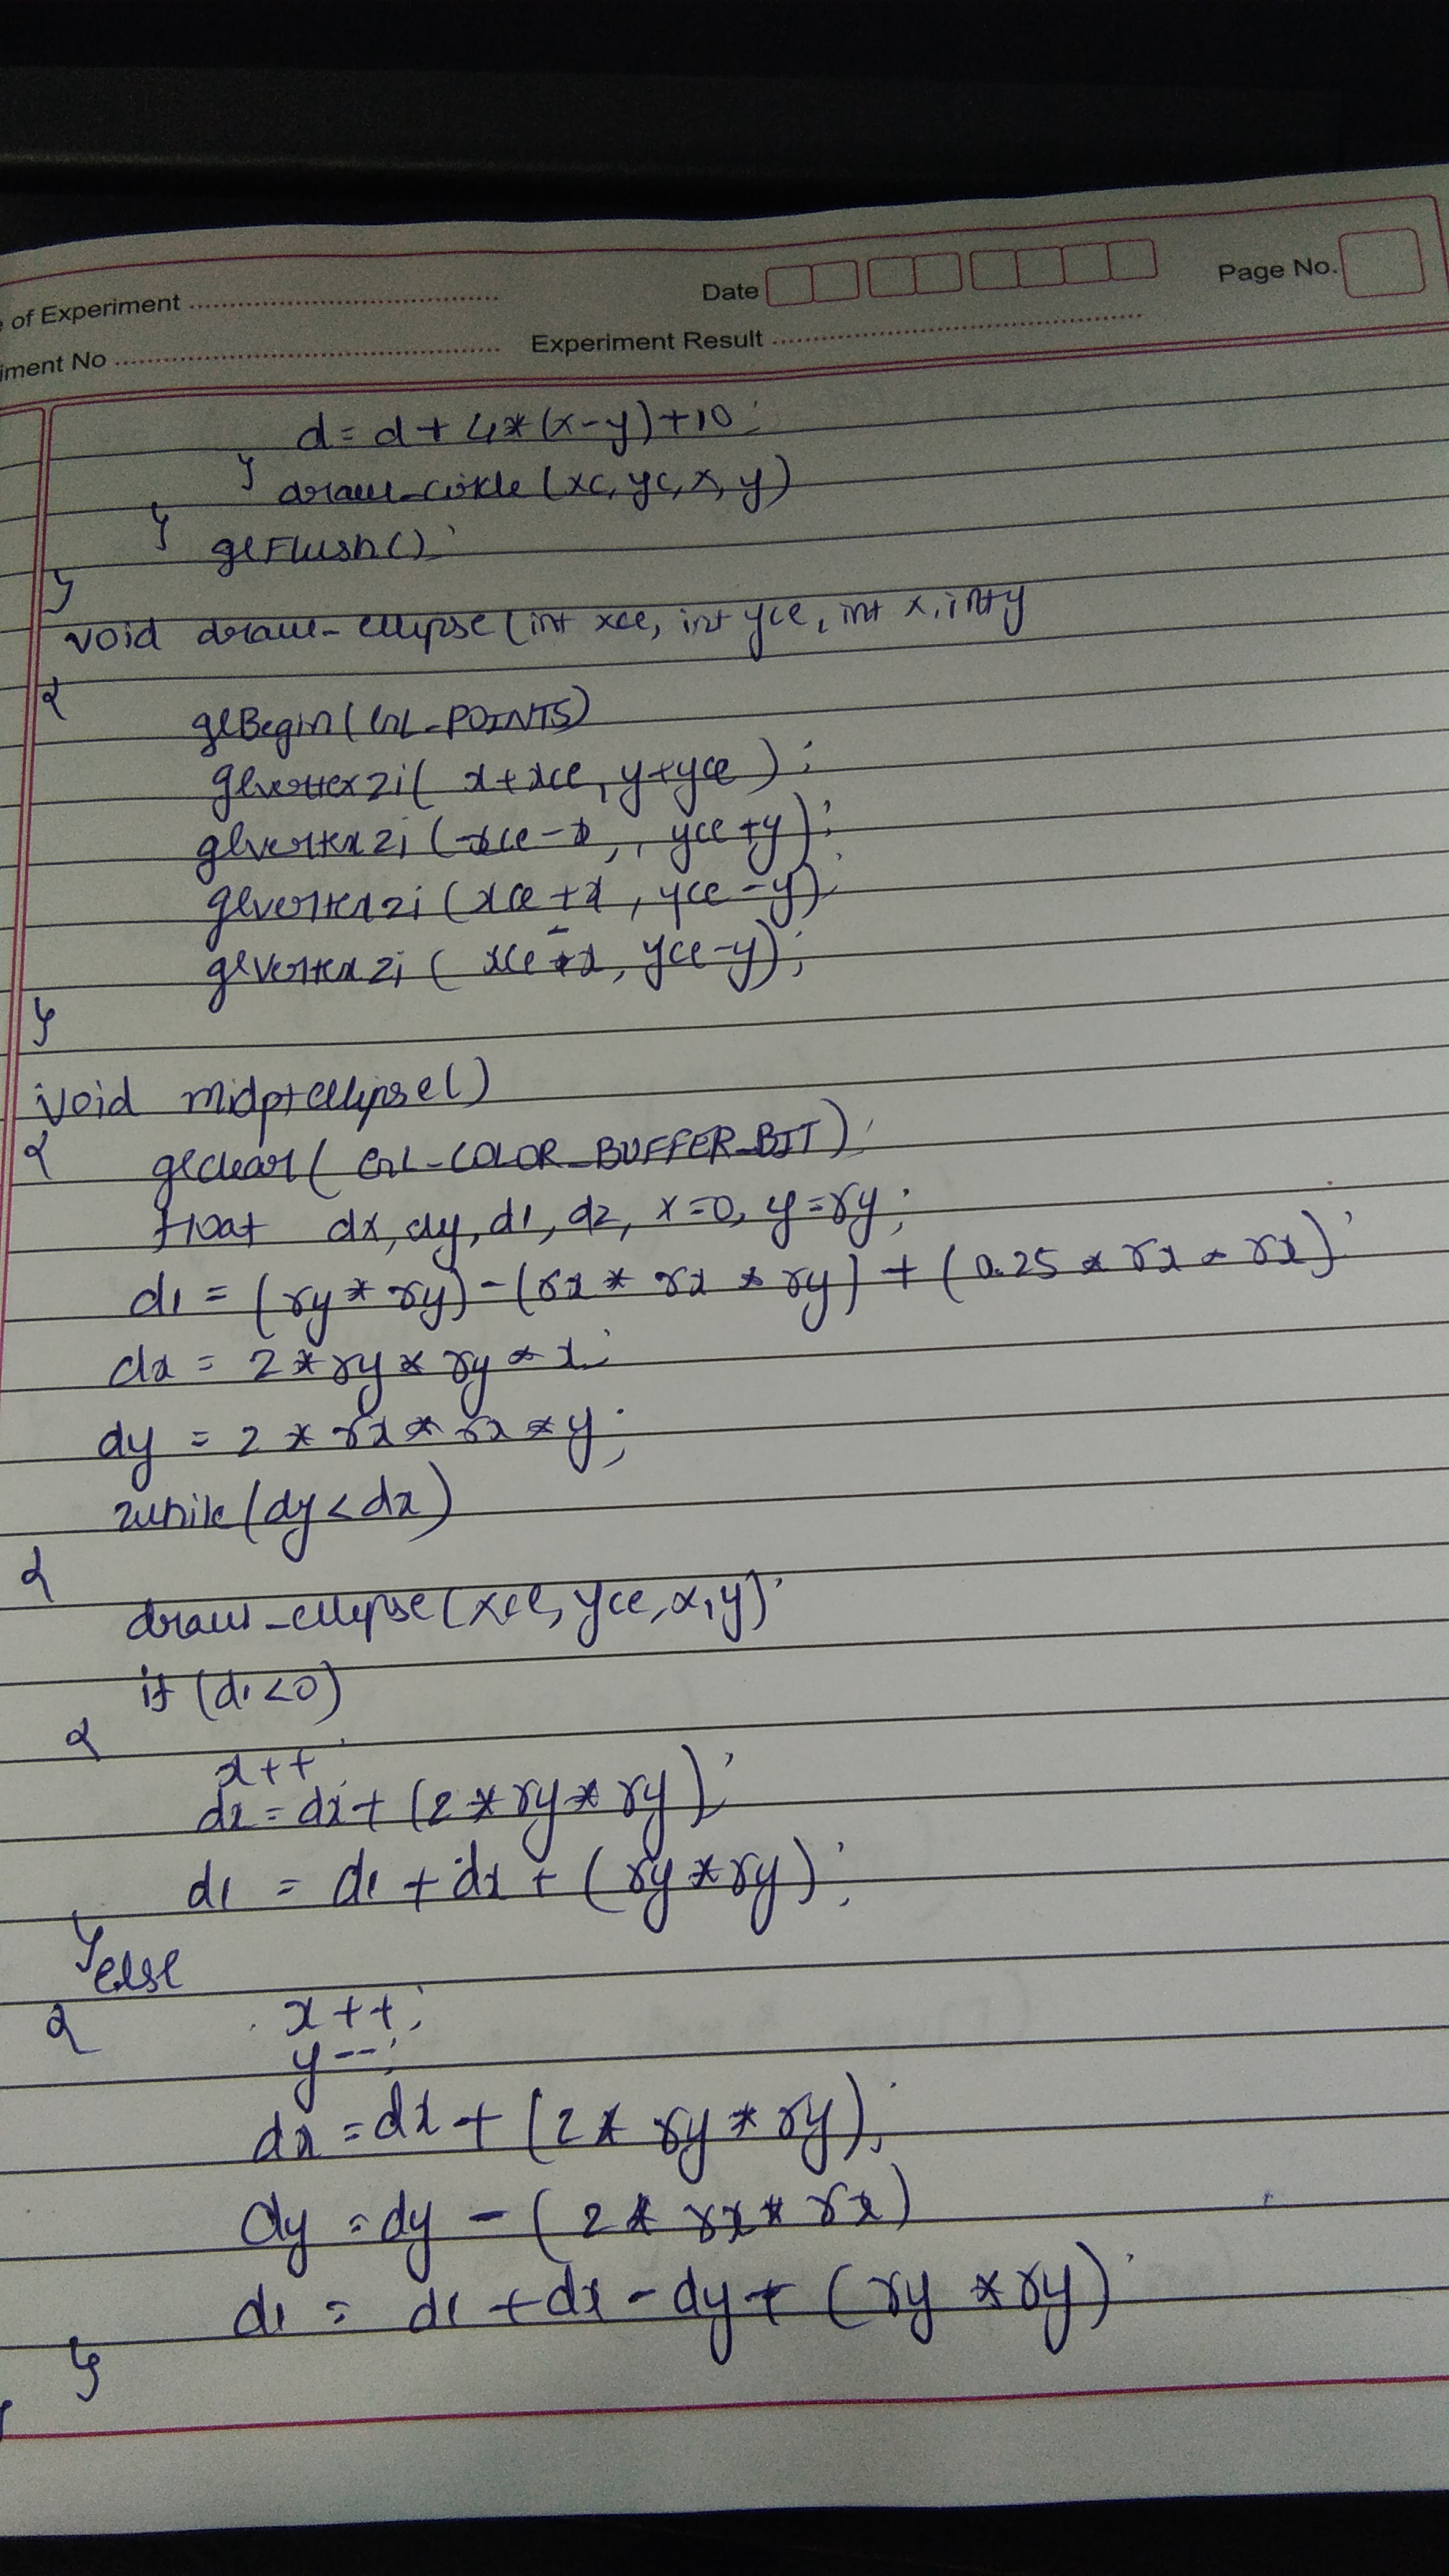 e of Experiment
Date
Page No.
iment No
Experiment Result
d = d + 4*(x-y)+10;
} draw_circle(xc, yc, x, y)
} glFlush();
}
void draw_ellipse(int xce, int yce, int x, int y
{
glBegin(GL_POINTS)
glvertex2i( x+xce, y+yce );
glvertex2i (xce-x, yce+y);
glvertex2i (xce+x, yce-y);
glvertex2i ( xce-x, yce-y);
}
void midptellipse()
{ glclear( GL_COLOR_BUFFER_BIT);
float dx, dy, d1, d2, x=0, y=ry;
d1 = (ry * ry) - (rx * rx * ry) + (0.25 * rx * rx);
dx = 2*ry * ry * x;
dy = 2 * rx * rx * y;
while (dy < dx)
{
draw_ellipse(xce, yce, x, y);
if (d1 <0)
{
x++;
dx = dx + (2 * ry * ry);
d1 = d1 + dx + (ry * ry);
} else
{ x++;
y--;
dx = dx + (2 * ry * ry);
dy = dy - ( 2 * rx * rx)
d1 = d1 + dx - dy + (ry * ry);
}